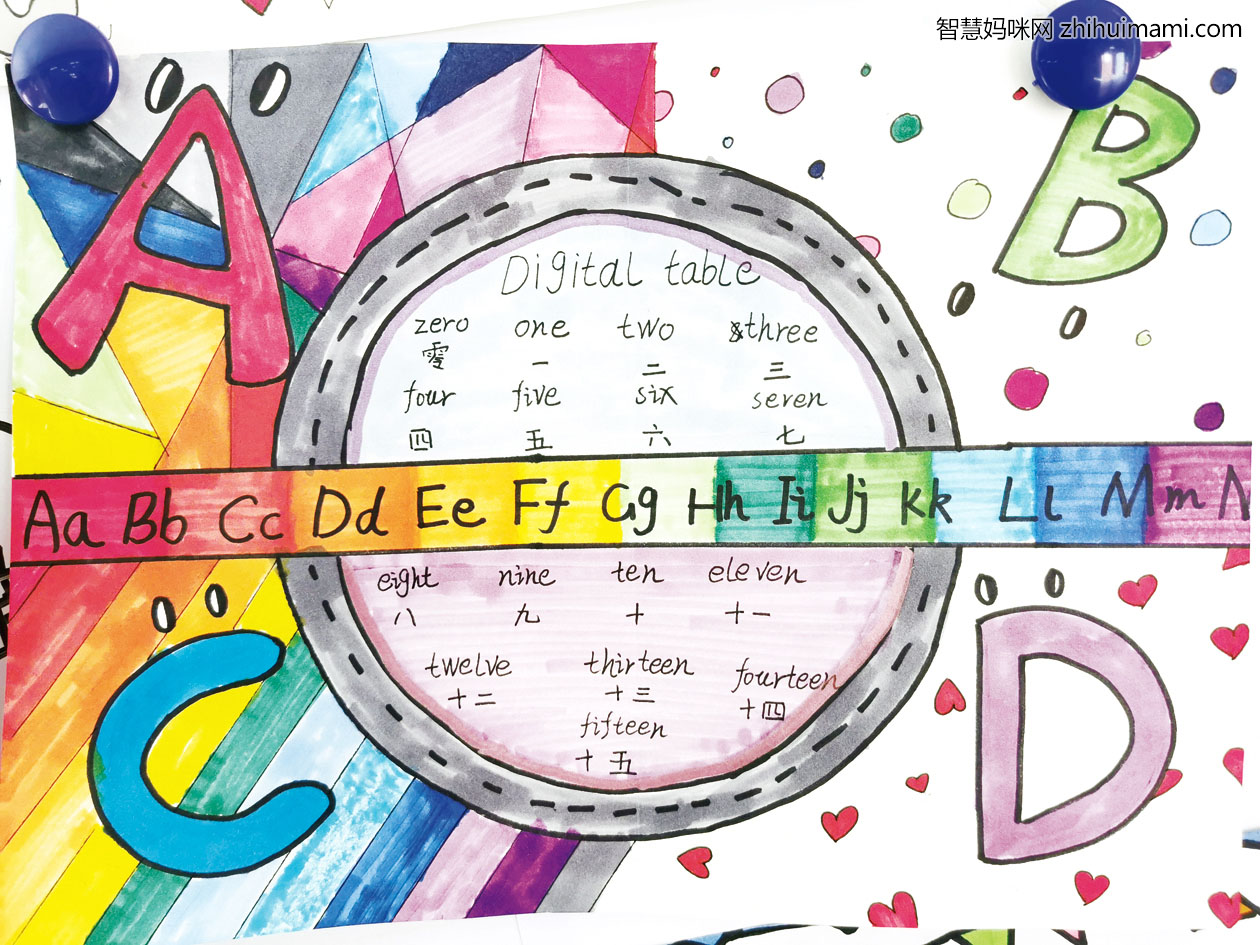 智慧妈咪网 zhihuimami.com
A
B
Digital table
zero one two three
零 一 二 三
four five six seven
四 五 六 七
Aa Bb Cc Dd Ee Ff Gg Hh Ii Jj Kk Ll Mm N
eight nine ten eleven
八 九 十 十一
twelve thirteen fourteen
十二 十三 十四
fifteen
十五
C
D